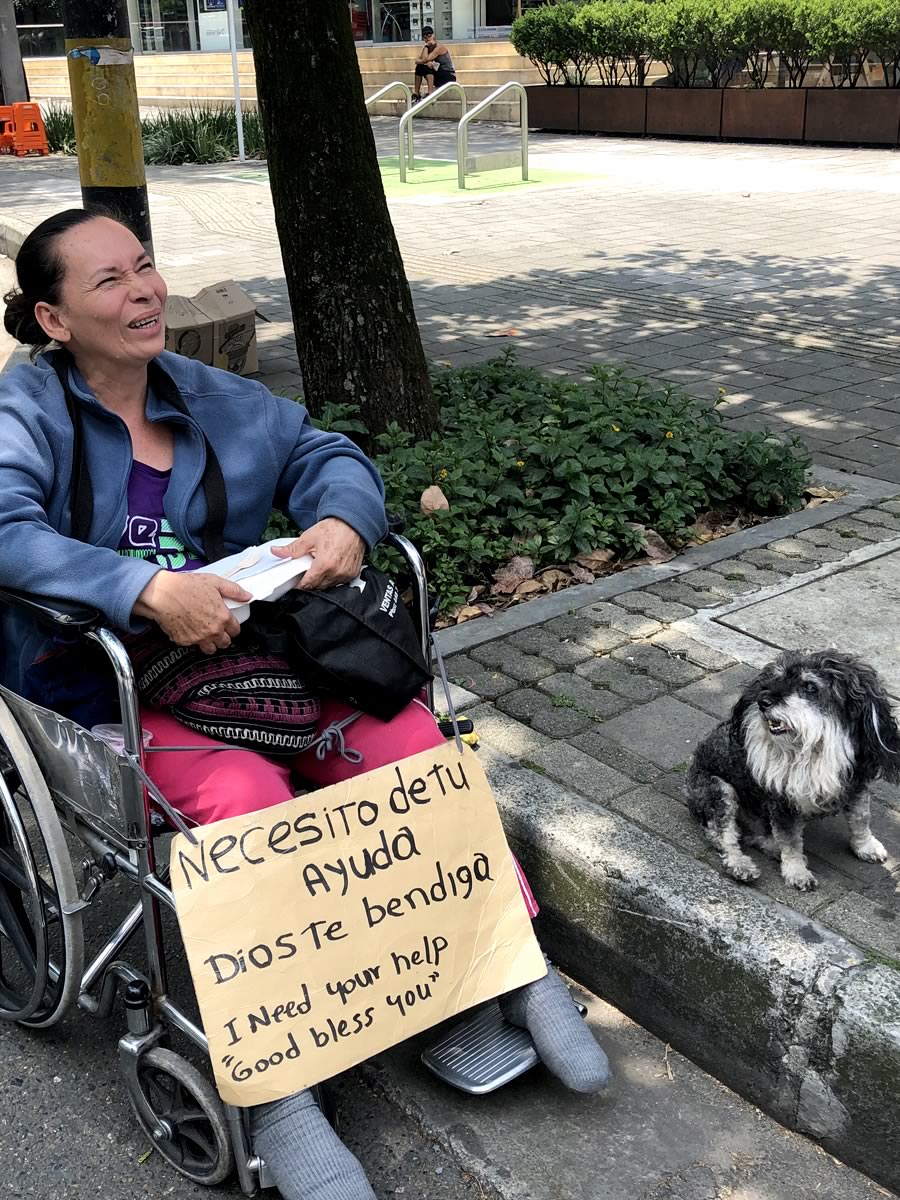 Necesito de tu
Ayuda
Dios te bendiga
I Need your help
"Good bless you"
VENTAS A